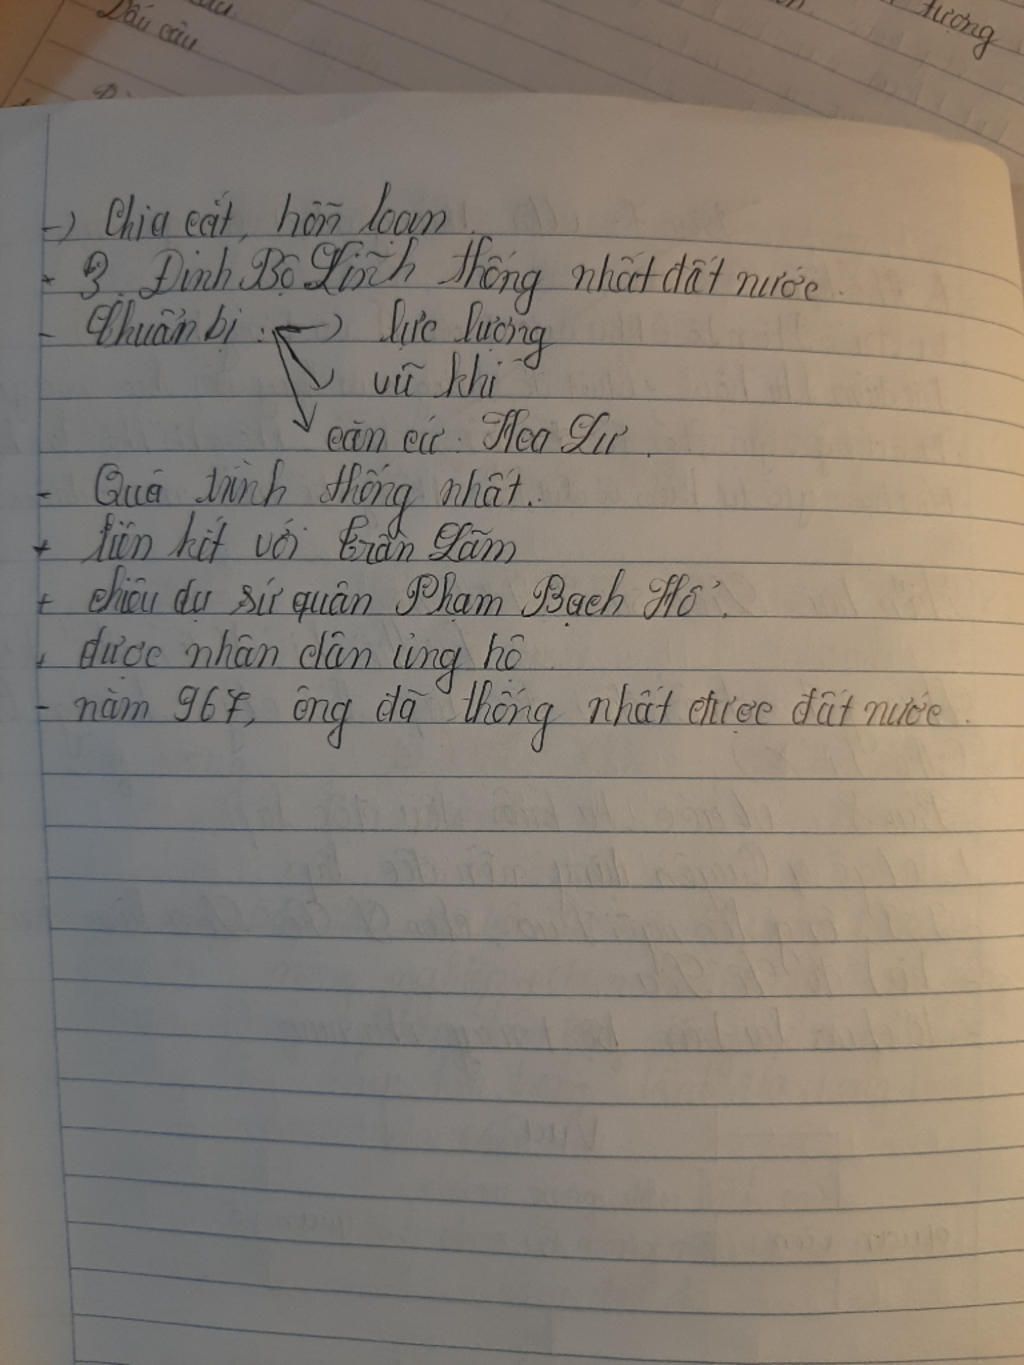 Dấu câu
tượng
-) Chia cắt, hỗn loạn.
+ 3. Đinh Bộ Lĩnh thống nhất đất nước.
- Chuẩn bị : -) lực lượng
vũ khí
căn cứ : Hoa Lư.
- Quá trình thống nhất.
+ liên kết với Trần Lãm
+ chiêu dụ sứ quân Phạm Bạch Hổ.
+ được nhân dân ủng hộ
- năm 967, ông đã thống nhất được đất nước.